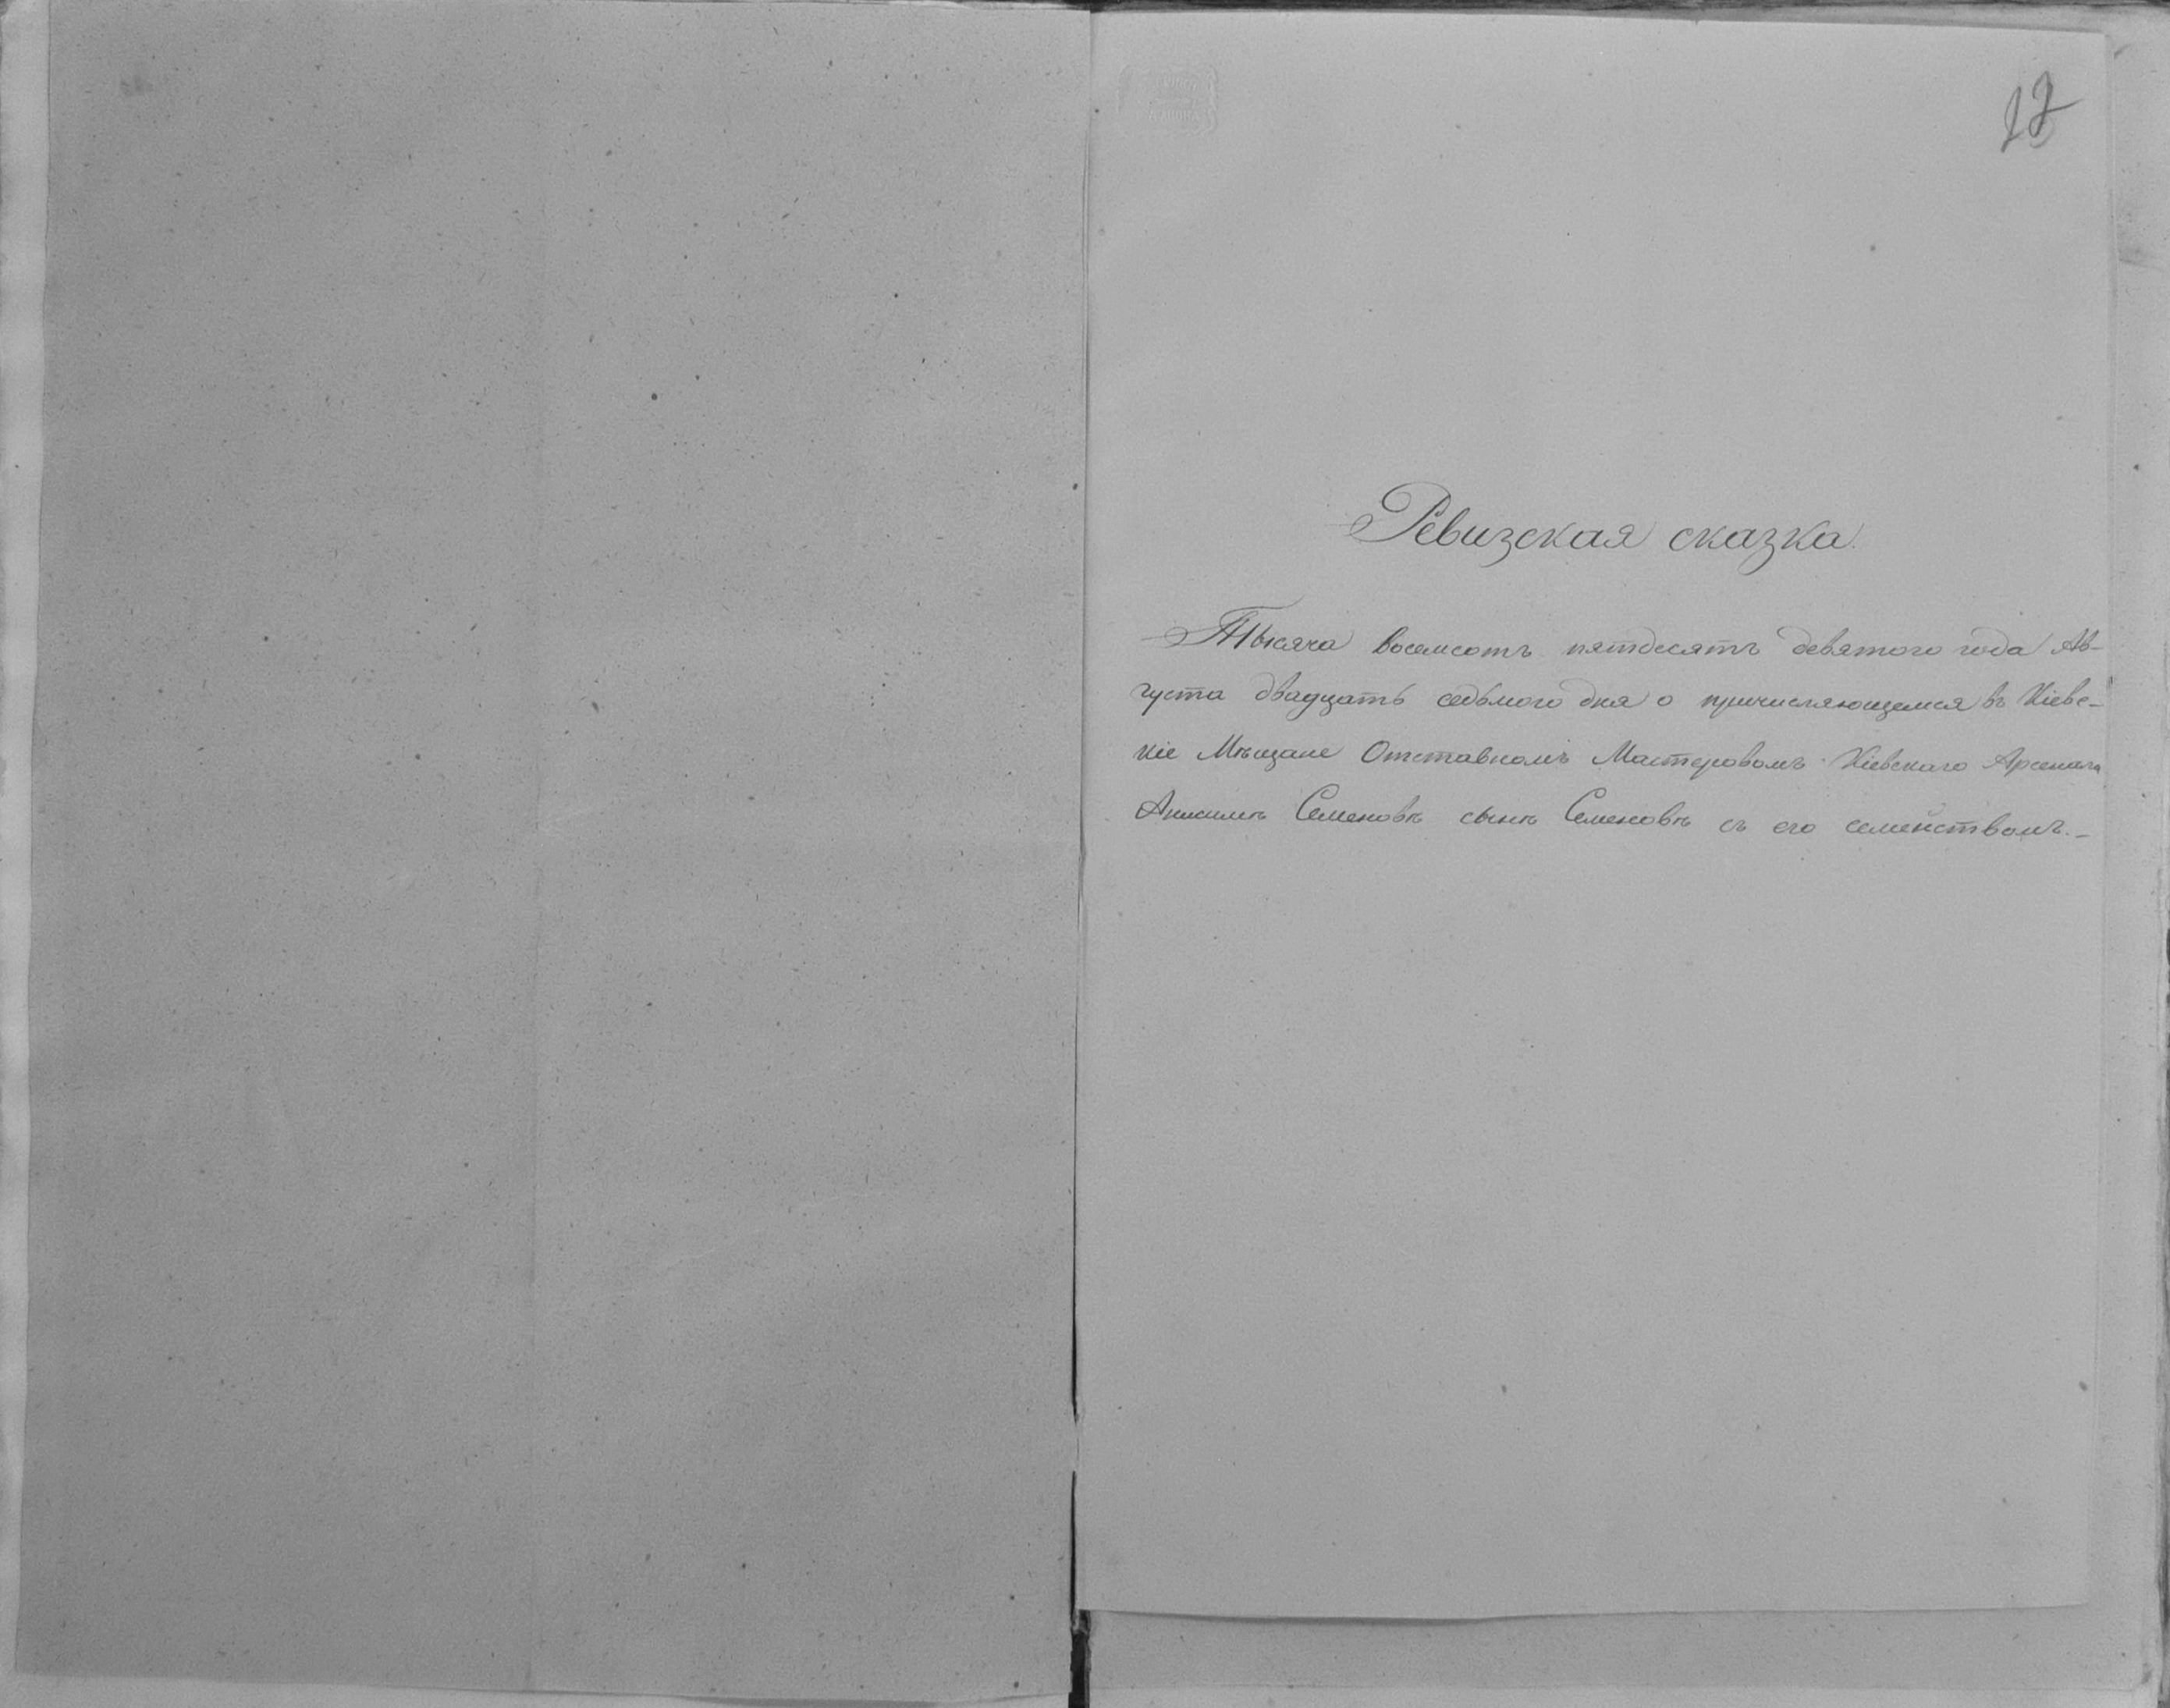 Ревизская сказка.
Тысяча восемсотъ пятдесятъ девятого года Ав-
густа двадцать седьмого дня о причисляющемся въ Кіевс-
кіе Мѣщане Отставномъ Мастеровомъ Кіевскаго Арсенала
Анисимѣ Семеновѣ сынѣ Семеновѣ съ его семействомъ.-